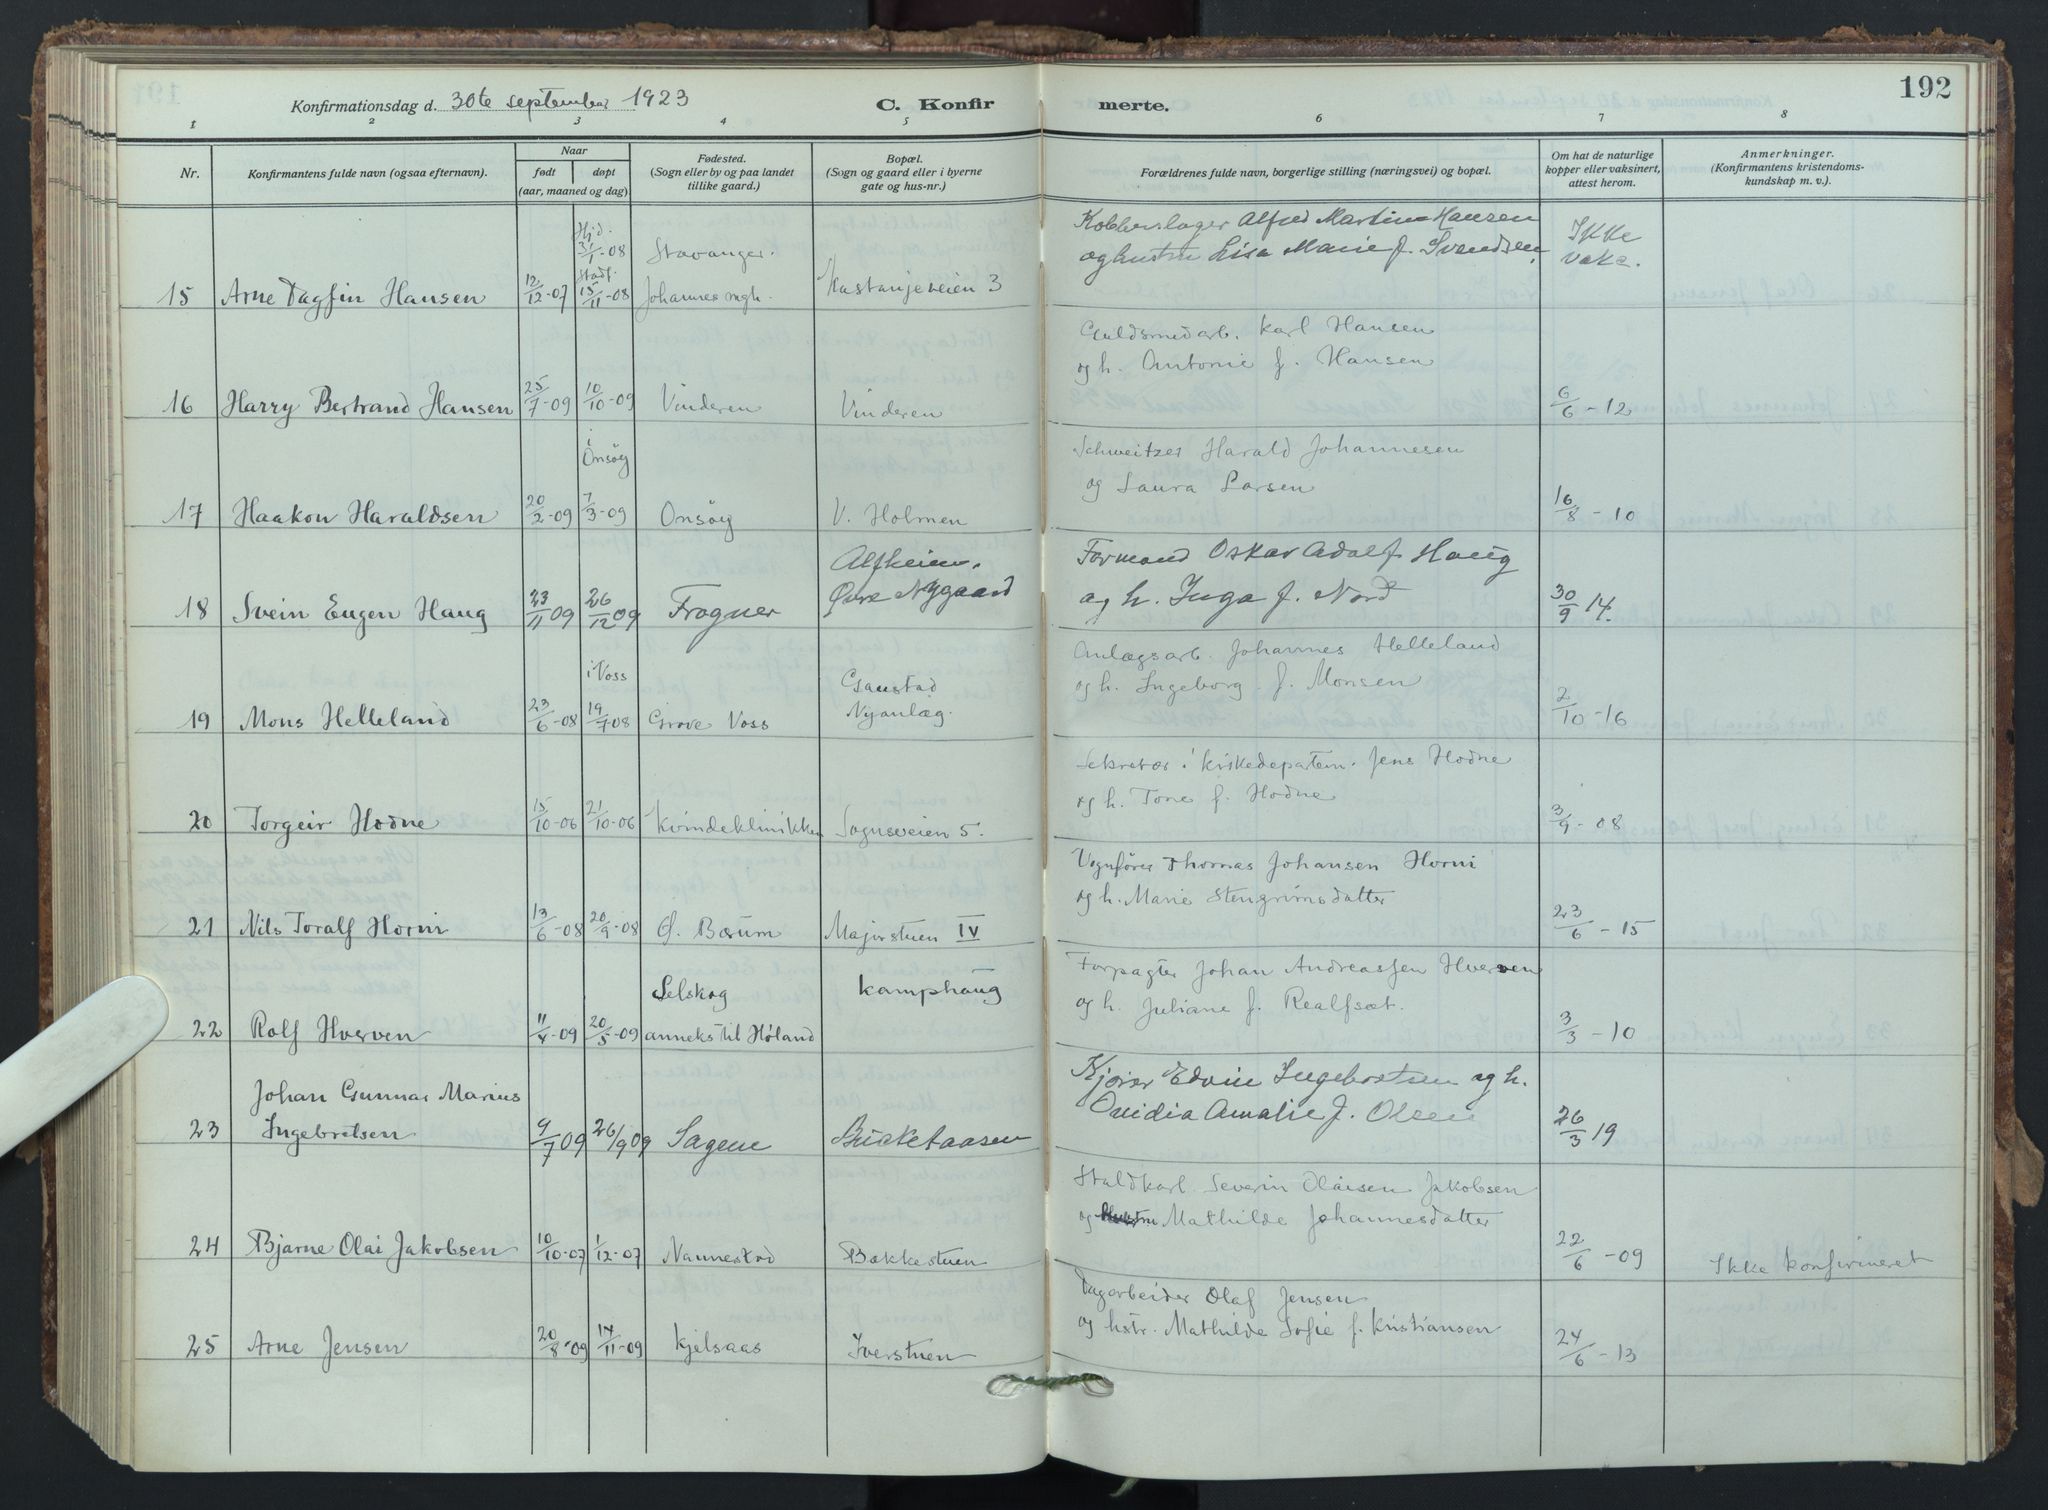 192
Konfirmationsdag d. 30te september 1923 C. Konfirmerte.
1 2 3 4 5 6 7 8
Nr. Konfirmantens fulde navn (ogsaa efternavn). Naar født døpt (aar, maaned og dag) Fødested. (Sogn eller by og paa landet tillike gaard.) Bopæl. (Sogn og gaard eller i byerne gate og hus-nr.) Forældrenes fulde navn, borgerlige stilling (næringsvei) og bopæl. Om hat de naturlige kopper eller vaksinert, attest herom. Anmerkninger. (Konfirmantens kristendomskundskap m. v.).
Hjd. 31/1-08 Stavanger. Kobberslager Alfred Martin Hansen Ikke
Stadf. og hustru Lisa Marie f. Svendsen. vakc.
15 Arne Dagfin Hansen 12/12-07 15/11-08 Johannes mgh. Kastanjeveien 3
Guldsmedarb. Karl Hansen
og h. Antonie f. Hansen
16 Harry Bertrand Hansen 25/7-09 10/10-09 Vinderen Vinderen 6/6-12
i Onsøy Schweitzer Harald Johannesen
og Laura Larsen
17 Haakon Haraldsen 20/2-09 7/3-09 Onsøy V. Holmen 16/8-10
Alfheim. Formand Oskar Adolf Haug
Øvre Nygaard og h. Inga f. Nord
18 Svein Eugen Haug 23/11 09 26/12 09 Frogner 30/9 14.
Anlægsarb. Johannes Helleland
i Voss Gaustad og h. Ingeborg f. Monsen
19 Mons Helleland 23/6-08 19/7 08 Grove Voss Nyanlæg. 2/10-16
Sekretær i kirkedepartem. Jens Hodne
og h. Tone f. Hodne
20 Torgeir Hodne 15/10-06 21/10-06 Kvindeklinikken Sognsveien 5. 3/9-08
Vognfører Thomas Johansen Horni
og h. Marie Stengrimsdatter
21 Nils Toralf Horni 13/6-08 20/9-08 Ø. Bærum Majorstuen IV 23/6-15
Selskog Kamphaug Forpagter Johan Andreassen Hverven
og h. Juliane f. Realfsæt.
22 Rolf Hverven 11/4-09 20/5-09 anneks til Høland 3/3-10
Johan Gunnar Marius Kjører Edvin Ingebretsen og h.
Ovidia Amalie f. Olsen
23 Ingebretsen 9/7 09 26/9 09 Sagene Birketaasen 26/3 19
Staldkarl Severin Olaisen Jakobsen
og Mathilde Johannesdatter
24 Bjarne Olai Jakobsen 10/10-07 1/12-07 Nannestad Bakkestuen 22/6-09 Ikke konfirmeret
Dagarbeider Olaf Jensen
og hstr. Mathilde Sofie f. Kristiansen
25 Arne Jensen 20/8-09 14/11-09 Kjelsaas Iverstuen 24/6-13